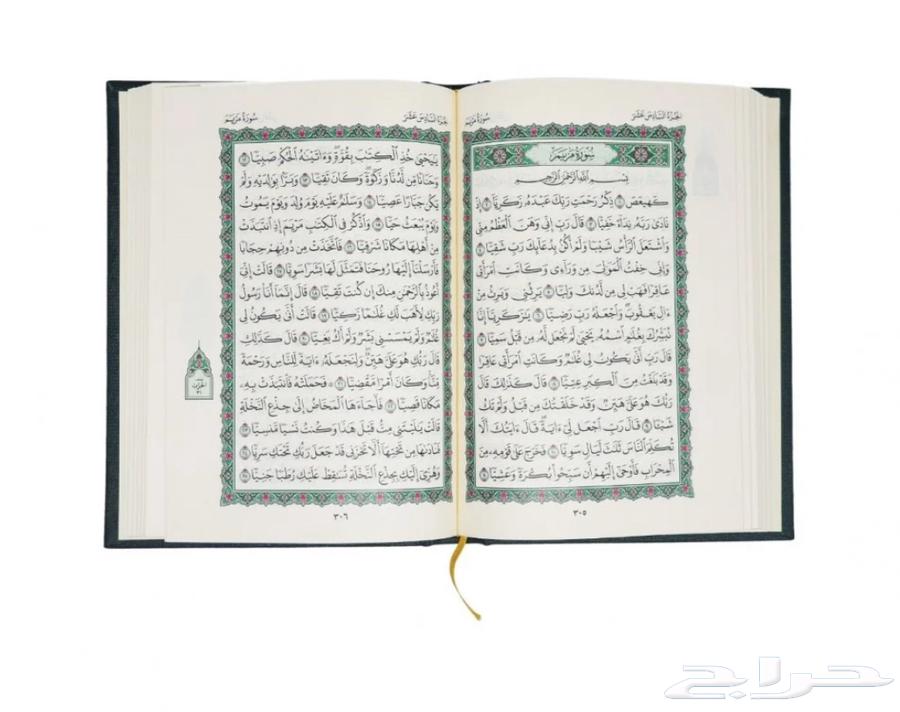 الجزء السادس عشر
سورة مريم
سورة مريم
بسم الله الرحمن الرحيم
كهيعص ١ ذكر رحمت ربك عبده زكريا ٢ إذ
نادى ربه نداء خفيا ٣ قال رب إني وهن العظم مني
واشتعل الرأس شيبا ولم أكن بدعائك رب شقيا ٤
وإني خفت الموالي من وراءي وكانت امرأتي
عاقرا فهب لي من لدنك وليا ٥ يرثني ويرث من
ءال يعقوب واجعله رب رضيا ٦ يزكريا إنا
نبشرك بغلم اسمه يحيى لم نجعل له من قبل سميا ٧
قال رب أنى يكون لي غلم وكانت امرأتي عاقرا
وقد بلغت من الكبر عتيا ٨ قال كذلك قال
ربك هو علي هين وقد خلقتك من قبل ولم تك
شيئا ٩ قال رب اجعل لي ءاية قال ءايتك ألا
تكلم الناس ثلث ليال سويا ١٠ فخرج على قومه من
المحراب فأوحى إليهم أن سبحوا بكرة وعشيا ١١
٣٠٥
الجزء السادس عشر
سورة مريم
ييحيى خذ الكتب بقوة وءاتينه الحكم صبيا ١٢
وحنانا من لدنا وزكوة وكان تقيا ١٣ وبرا بولديه ولم
يكن جبارا عصيا ١٤ وسلم عليه يوم ولد ويوم يموت
ويوم يبعث حيا ١٥ واذكر في الكتب مريم إذ انتبذت
من أهلها مكانا شرقيا ١٦ فاتخذت من دونهم حجابا
فأرسلنا إليها روحنا فتمثل لها بشرا سويا ١٧ قالت إني
أعوذ بالرحمن منك إن كنت تقيا ١٨ قال إنما أنا رسول
ربك لأهب لك غلما زكيا ١٩ قالت أنى يكون لي
غلم ولم يمسسني بشر ولم أك بغيا ٢٠ قال كذلك
قال ربك هو علي هين ولنجعله ءاية للناس ورحمة
منا وكان أمرا مقضيا ٢١ فحملته فانتبذت به
مكانا قصيا ٢٢ فأجاءها المخاض إلى جذع النخلة
قالت يليتني مت قبل هذا وكنت نسيا منسيا ٢٣
فنادىها من تحتها ألا تحزني قد جعل ربك تحتك سريا ٢٤
وهزي إليك بجذع النخلة تسقط عليك رطبا جنيا ٢٥
٣٠٦
حراج